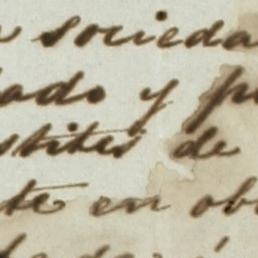 socieda
ado y p
stites de
te en ob